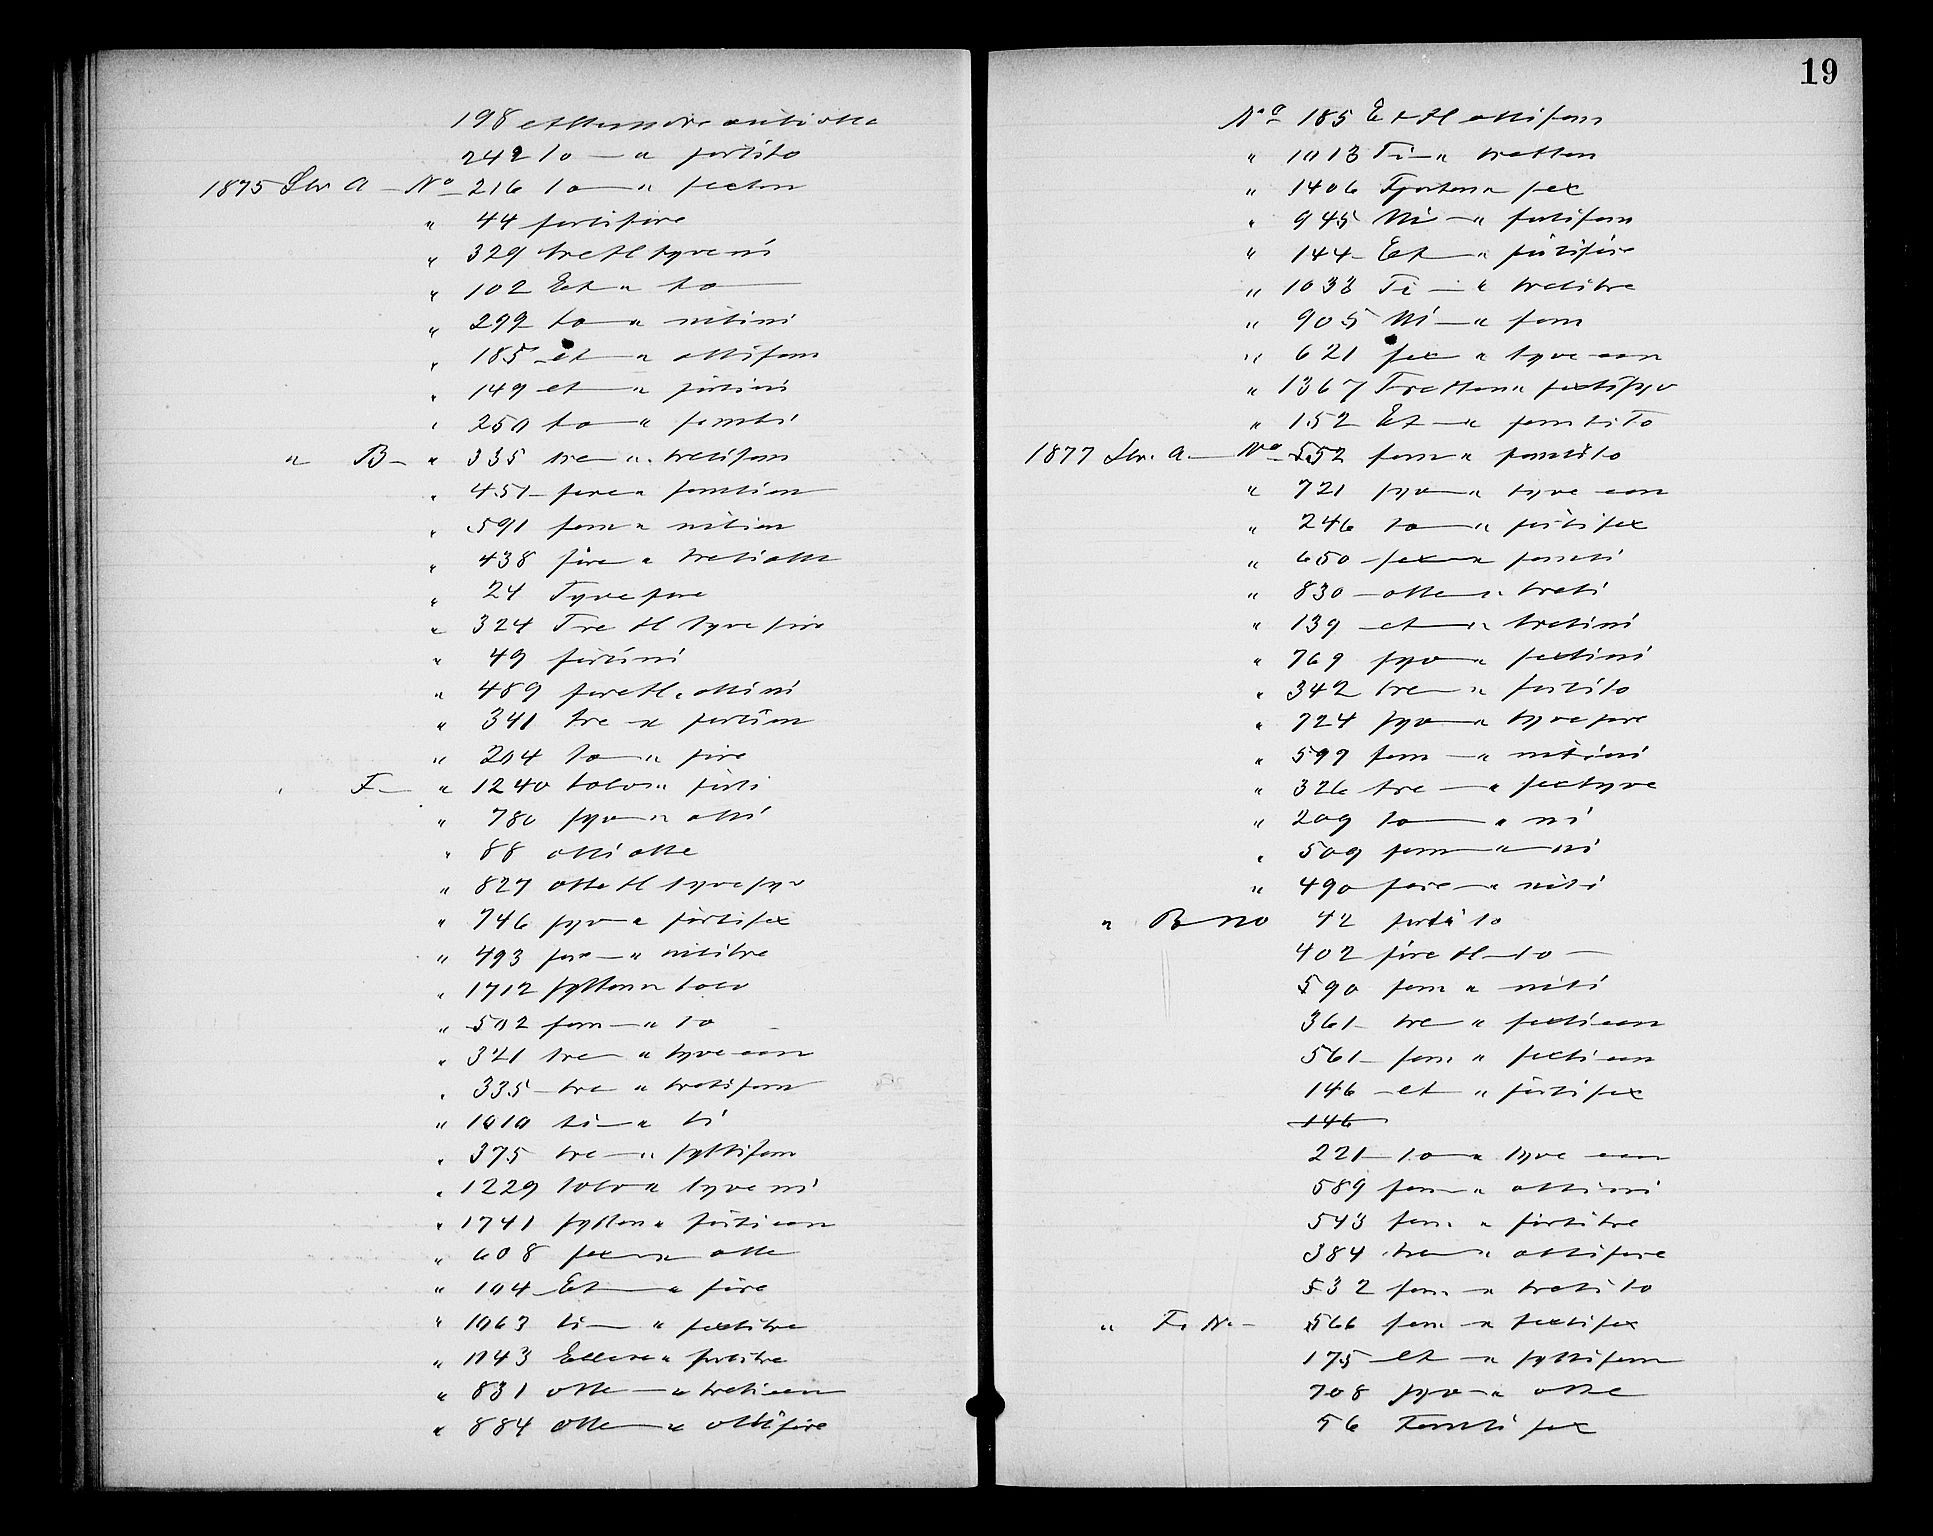 198 et hundre nitiotte
242 to — " fortito
1875 Ltr A — No 216 to — " sexten
" 44 fortifire
" 329 tre H tyveni
" 102 Et " to —
" 299 to — " nitini
" 185 et — " ottifem
" 149 et — " førtini
" 250 to — " femti
" B — " 335 tre " tretifem
" 451 — fire " femtien
" 591 fem " nitien
" 438 fire " tretiotte
" 24 Tyvefire
" 324 Tre H tyvefire
" 49 førtini
" 489 fire H. ottini
" 341 tre — " førtien
" 204 to — " fire
F — " 1240 tolv " førti
" 780 syv — " otti
" 88 ottiotte
" 827 otte H tyvesyv
" 746 syv — " førtisex
" 493 fire — " nititre
" 1712 sytten " tolv
" 502 fem — " to
" 321 tre — " tyve een
" 335 — tre " tretifem
" 1010 ti — " ti
" 375 tre — " syttifem
" 1229 tolv " tyveni
" 1741 sytten " førti een
" 608 sex — " otte
" 104 Et — " fire
" 1063 ti — " sextitre
" 1143 Elleve " førtitre
" 831 otte — " treti een
" 884 otte — " ottifire
19
No 185 Et H ottifem
" 1013 Ti — " tretten
" 1406 Fjorten " sex
" 945 Ni — " førtifem
" 144 — Et — " førtifire
" 1033 Ti — " tretitre
" 905 Ni — " fem
" 621 sex " tyve een
" 1367 Tretten " sextisyv
" 152 Et — " femtiTo
1877 Ltr. A — No 552 fem " femtito
" 721 syv — " tyve een
" 246 to — " førtisex
" 650 sex — " femti
" 830 — otte " treti
" 139 — et — " tretini
" 769 syv — " sextini
" 342 tre — " førtito
" 724 syv — " tyvefire
" 599 fem — " nitini
" 326 tre — " sextyve
" 209 to — " ni
" 509 fem — " ni
" 490 fire — " niti
" B no 42 førti to
402 fire H — to —
590 fem " niti
361 — tre " sexti een
561 — fem " sexti een
146 — et " førtisex
146
221 — to — " tyve een
589 fem — " ottini
543 fem " førtitre
384 tre — " ottifire
532 fem — " treti to
" F. N. — 566 fem — " sextisex
175 — et — " syttifem
708 syv — " otte
56 Femti sex